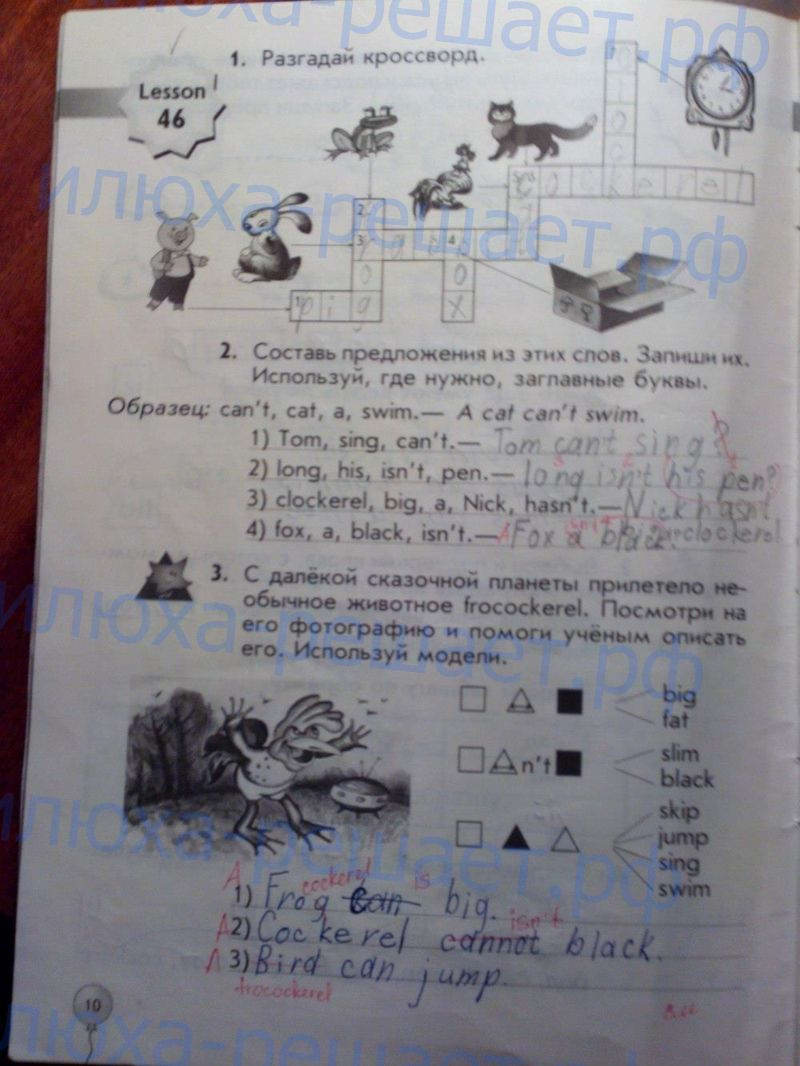 илюха-решает.рф
1. Разгадай кроссворд.
Lesson
46
илюха-решает.рф
cockerel
2.
3.
4.
o o
1. pig x
2. Составь предложения из этих слов. Запиши их.
Используй, где нужно, заглавные буквы.
Образец: can't, cat, a, swim.— A cat can't swim.
1) Tom, sing, can't.— Tom can't sing?
2) long, his, isn't, pen.— long isn't his pen?
3) clockerel, big, a, Nick, hasn't.— Nick hasn't
big a clockerel
4) fox, a, black, isn't.— A Fox a isn't black.
3. С далёкой сказочной планеты прилетело не-
обычное животное frocockerel. Посмотри на
его фотографию и помоги учёным описать
его. Используй модели.
илюха-решает.рф
big
fat
n't
slim
black
skip
jump
sing
swim
илюха-решает.рф
A cockerel is
1) Frog can big.
isn't
A 2) Cockerel cannot black.
A 3) Bird can jump.
frocockerel
10
илюха-решает.рф